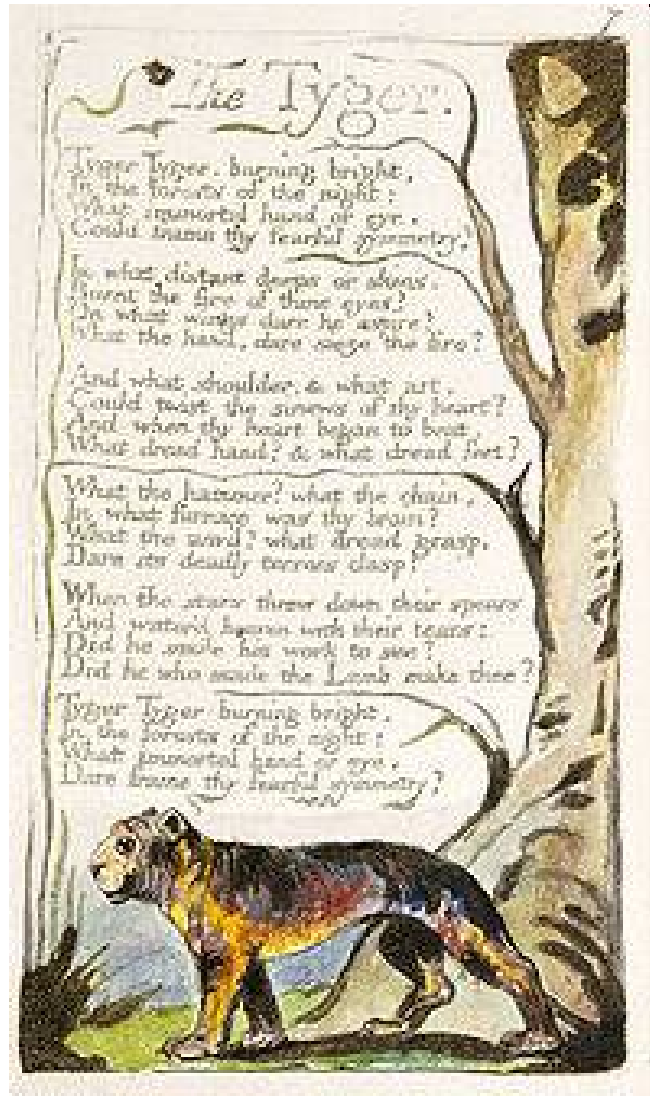 The Tyger.
Tyger Tyger. burning bright,
In the forests of the night:
What immortal hand or eye,
Could frame thy fearful symmetry?
In what distant deeps or skies.
Burnt the fire of thine eyes?
On what wings dare he aspire?
What the hand, dare sieze the fire?
And what shoulder, & what art,
Could twist the sinews of thy heart?
And when thy heart began to beat,
What dread hand? & what dread feet?
What the hammer? what the chain,
In what furnace was thy brain?
What the anvil? what dread grasp,
Dare its deadly terrors clasp!
When the stars threw down their spears
And water'd heaven with their tears:
Did he smile his work to see?
Did he who made the Lamb make thee?
Tyger Tyger burning bright,
In the forests of the night:
What immortal hand or eye,
Dare frame thy fearful symmetry?